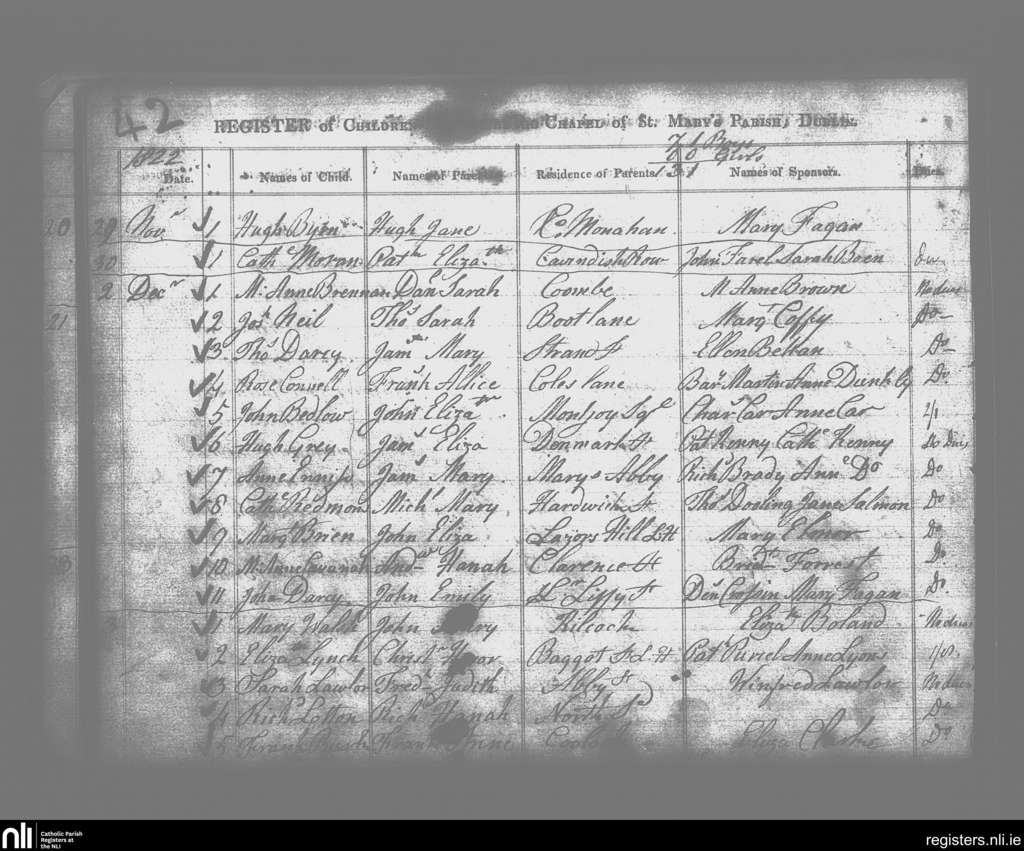 42
REGISTER of CHILDREN CHAPEL of ST. MARY'S PARISH, DUBLIN.
71 Boys
60 Girls
131
1822
Date. Names of Child. Names of Parents Residence of Parents Names of Sponsors. Dues.
20 29 Novr 1 Hugh Byrn Hugh Jane Co Monahan Mary Fagan
30 1 Cathe Moran Patk Elizath Cavendish Row John Farel Sarah Boen
2 Decr 1 M. Anne Brennan Danl Sarah Coombe M Anne Brown
21 2 Josh Neil Thos Sarah Bootlane Margt Coffy Do
3 Thos Darcy Jams Mary Strand St Ellen Beltan Do
4 Rose Connell Frank Allice Coles lane Bar Martin Anne Dunkly Do
5 John Bedlow John Elizath Montjoy Sqe Chars Car Anne Car 2/1
6 Hugh Grey Jams Eliza Denmark St Pat Kenny Cathe Kenny Do
7 Anne Enniss Jams Mary Marys Abby Richd Brady Anne Do Do
8 Cathe Redmon Michl Mary Hardwick St Thos Dooling Jane Salmon Do
9 Margt Brien John Eliza Lazors Hill L H Mary Elmor Do
10 M. Anne Cavanah Andw Hanah Clarence St Bridt Forrest Do
11 John Darcy John Emily Lr Liffy St Mary Fagan Do
1 Mary Walsh John Kilcock Elizath Boland
2 Elizath Lynch Christr Baggot St L H Patk Anne Lyons
3 Sarah Lawlor Fredk Judith Abby St Winfred Lawlor
4 Richd Lotten Richd Hanah North Do
5 Frank Frank Anne Eliza Do
nli Catholic Parish
Registers at
the NLI
registers.nli.ie